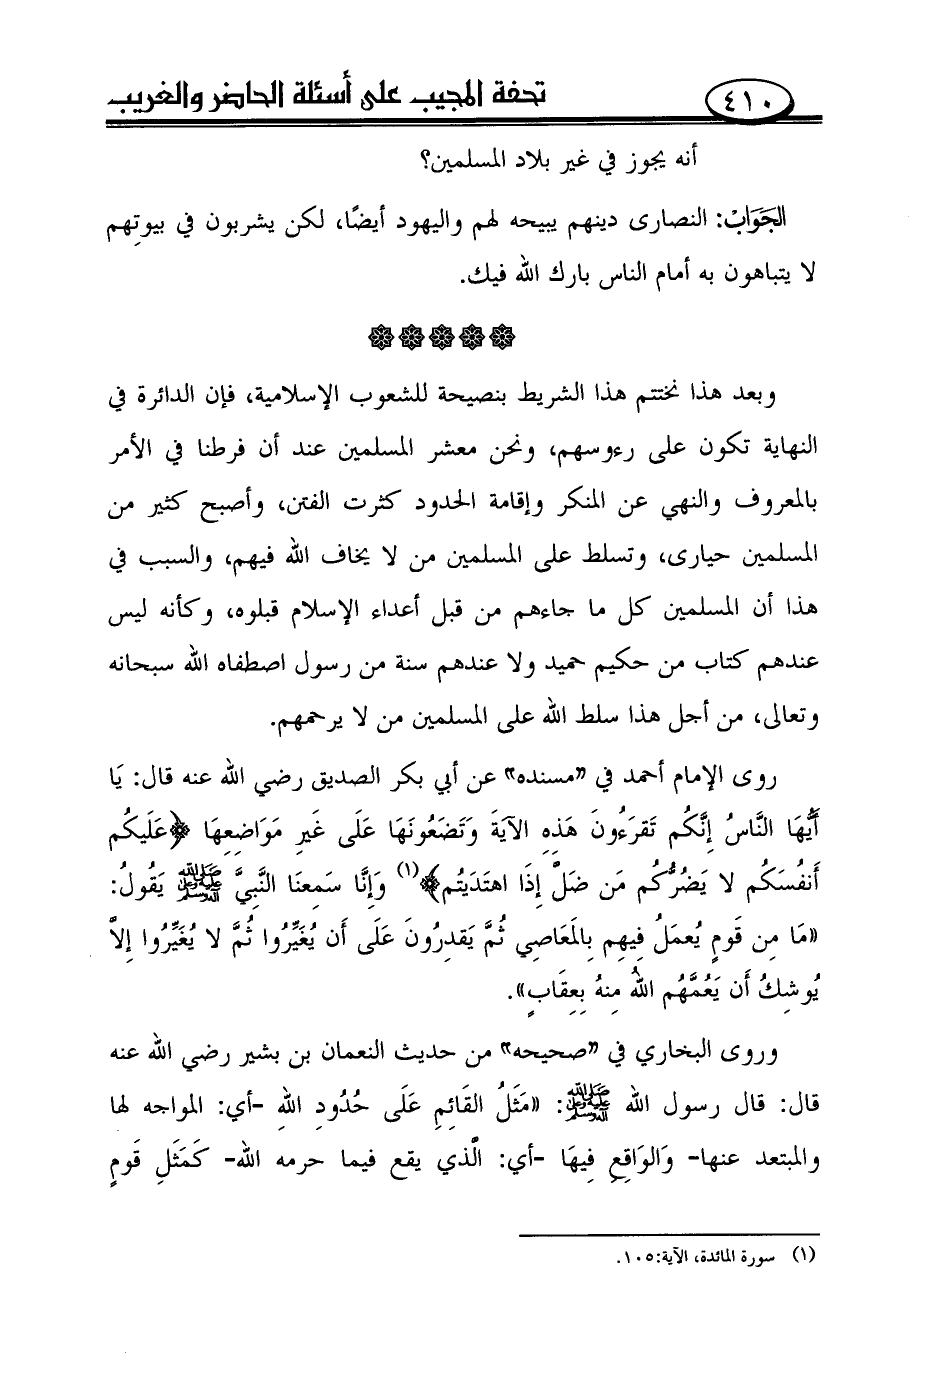 ٤١٠
تحفة المجيب على أسئلة الحاضر والغريب
أنه يجوز في غير بلاد المسلمين؟
الجَوَابْ: النصارى دينهم يبيحه لهم واليهود أيضًا، لكن يشربون في بيوتِهم
لا يتباهون به أمام الناس بارك الله فيك.
وبعد هذا نختتم هذا الشريط بنصيحة للشعوب الإسلامية، فإن الدائرة في
النهاية تكون على رءوسهم، ونحن معشر المسلمين عند أن فرطنا في الأمر
بالمعروف والنهي عن المنكر وإقامة الحدود كثرت الفتن، وأصبح كثير من
المسلمين حيارى، وتسلط على المسلمين من لا يخاف الله فيهم، والسبب في
هذا أن المسلمين كل ما جاءهم من قبل أعداء الإسلام قبلوه، وكأنه ليس
عندهم كتاب من حكيم حميد ولا عندهم سنة من رسول اصطفاه الله سبحانه
وتعالى، من أجل هذا سلط الله على المسلمين من لا يرحمهم.
روى الإمام أحمد في «مسنده» عن أبي بكر الصديق رضي الله عنه قال: يَا
أَيُّهَا النَّاسُ إِنَّكُم تَقرَءُونَ هَذِهِ الآيَةَ وَتَضَعُونَهَا عَلَى غَيرِ مَوَاضِعِهَا ﴿عَلَيكُم
أَنفُسَكُم لا يَضُرُّكُم مَن ضَلَّ إِذَا اهتَدَيتُم﴾(١) وَإِنَّا سَمِعنَا النَّبِيَّ ﷺ يَقُولُ:
«مَا مِن قَومٍ يُعمَلُ فِيهِم بِالمَعَاصِي ثُمَّ يَقدِرُونَ عَلَى أَن يُغَيِّرُوا ثُمَّ لا يُغَيِّرُوا إِلاَّ
يُوشِكُ أَن يَعُمَّهُم اللهُ مِنهُ بِعِقَابٍ».
وروى البخاري في «صحيحه» من حديث النعمان بن بشير رضي الله عنه
قال: قال رسول الله ﷺ: «مَثَلُ القَائِمِ عَلَى حُدُودِ اللهِ -أي: المواجه لها
والمبتعد عنها- وَالوَاقِعِ فِيهَا -أي: الَّذي يقع فيما حرمه الله- كَمَثَلِ قَومٍ
(١) سورة المائدة، الآية:١٠٥.